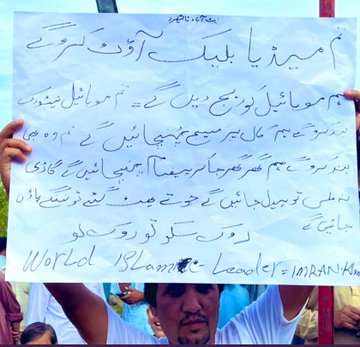 ایبٹ آباد
تم میڈیا بلیک آؤٹ کروگے
ہم موبائیل کوریج دیں گے = تم موبائیل نیٹورک
بند کروگے ہم کال پر میسج پہنچائیں گے تم وہ بھی
بند کروگے ہم گھر گھر جا کر پہنچائیں گے گاڑی
نہ ملی تو پیدل جائیں گے جوتے پھٹ گئے تو ننگے پاؤں
جائیں گے
روک سکو تو روک لو
World Islamic Leader = IMRAN Khan